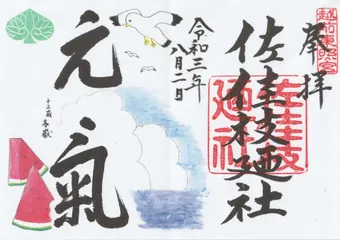 越前東照宮
奉拝
佐佳枝廼社
佐佳枝廼社
令和三年
八月二日
元氣
十三歳